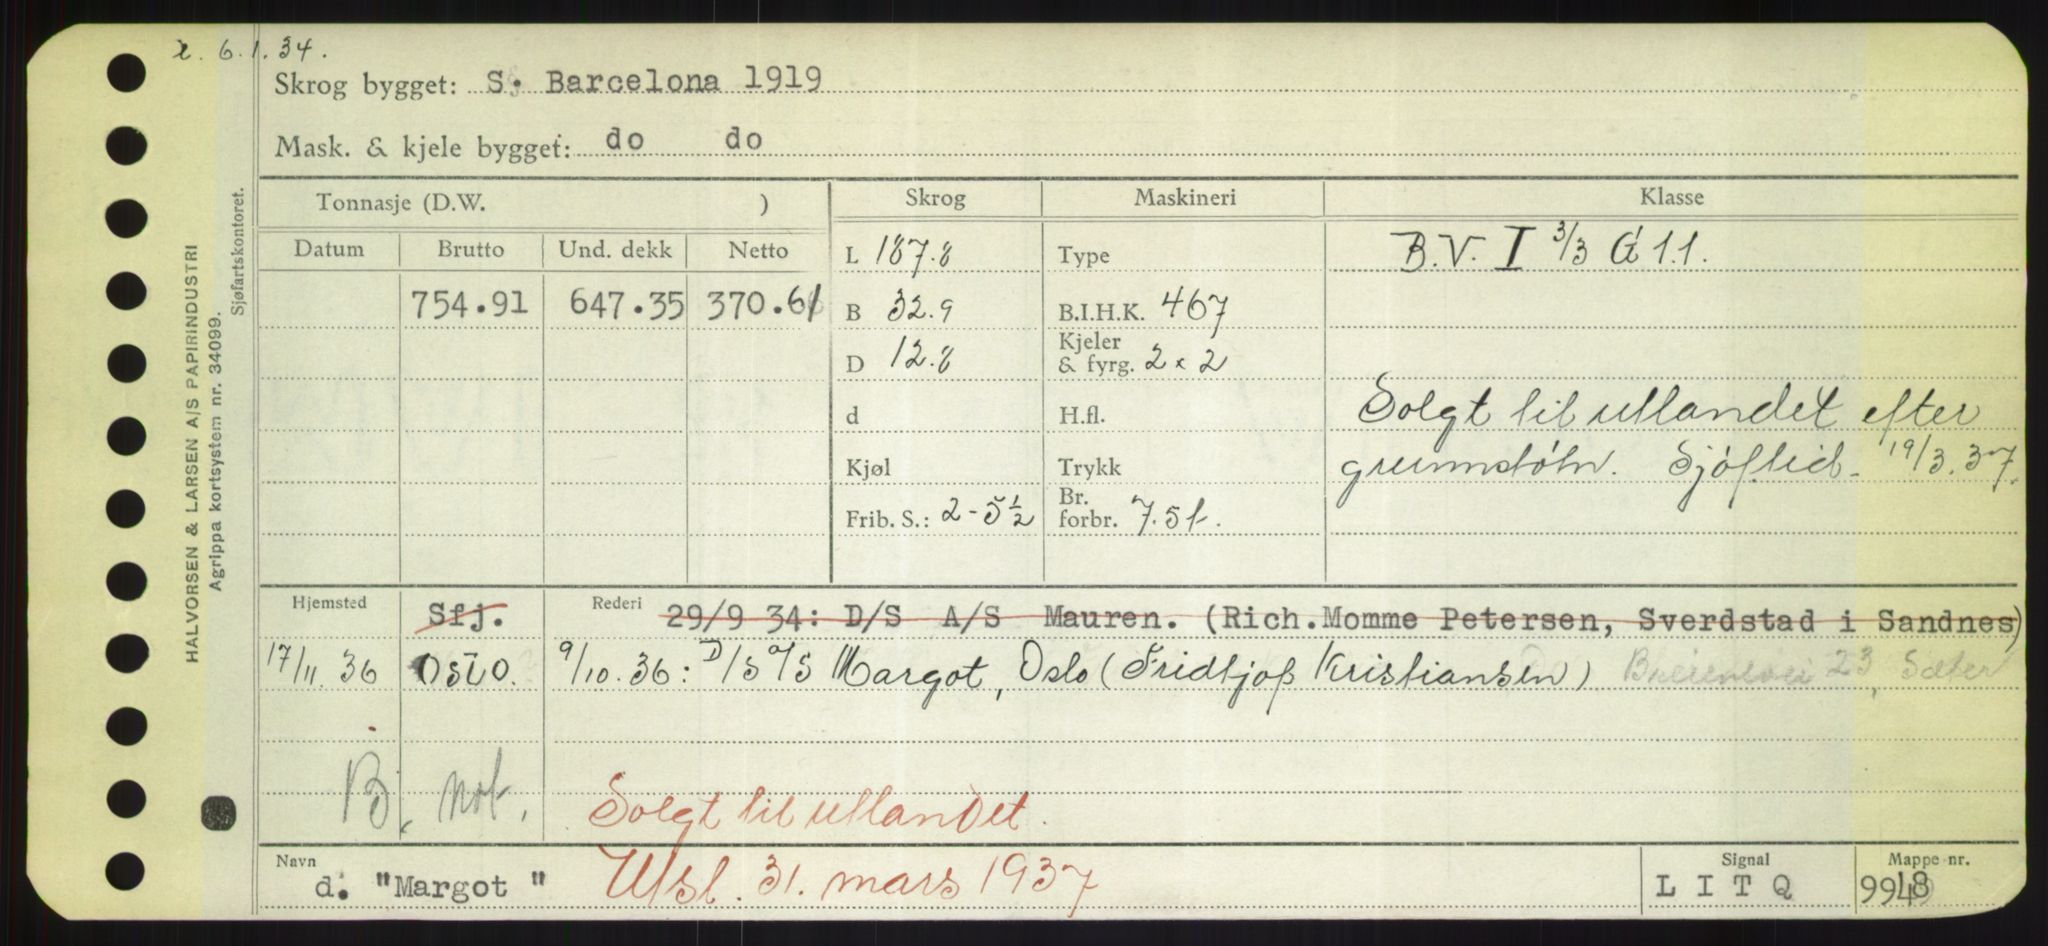 r. 6.1.34.
Skrog bygget: S. Barcelona 1919
Mask. & kjele bygget: do do
HALVORSEN & LARSEN A/S PAPIRINDUSTRI
Agrippa kortsystem nr. 34099.
Sjøfartskontoret.
Tonnasje (D.W. ) Skrog Maskineri Klasse
Datum Brutto Und. dekk Netto L 187.8 Type B.V. I 3/3 G 1.1.
754.91 647.35 370.61 B 32.9 B.I.H.K. 467
D 12.8 Kjeler & fyrg. 2 x 2
d H.fl. Solgt til utlandet efter
Kjøl Trykk grunnstötn. Sjöf.tid. 19/3.37.
Frib. S.: 2-5½ Br. forbr. 7.5t.
Hjemsted Sfj. Rederi 29/9 34: D/S A/S Mauren. (Rich.Momme Petersen, Sverdstad i Sandnes)
17/11. 36 Oslo. 9/10.36: D/S A/S Margot, Oslo (Fridtjof Kristiansen) 23, Sæter
B. not. Solgt til utlandet.
Navn d. "Margot" Utsl. 31. mars 1937 Signal L I T Q Mappe nr. 9948